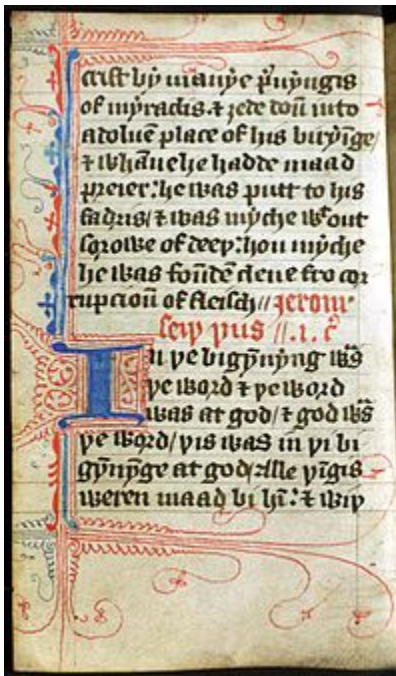 crist bẏ manẏe p̄uẏngis
of mẏraclis .⁊ ȝede doū into
a doluē place of his buriẏ̄ge/
⁊ whāne he hadde maad
preier: he was putt to his
fadris/ ⁊ was mẏche wᵗout
sorowe of deeþ: hou mẏche
he was foūdē clene fro cor
rupcioū of fleisch// Jerom
seiþ þus //.i. c̄
In þe bigẏ̄nẏng was
þe word ⁊ þe word
was at god/ ⁊ god was
þe word/ þis was in þi bi
gẏ̄nẏnge at god/ alle þīgis
weren maad bi hī: ⁊ wiþ